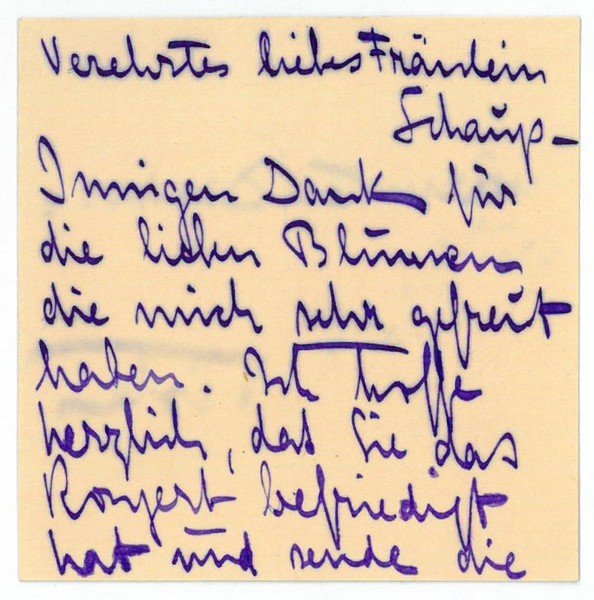 Verehrtes liebes Fräulein
Schaup –
Innigen Dank für
die lieben Blumen
die mich sehr gefreut
haben. Ich hoffe
herzlich, das Sie das
Konzert befriedigt
hat und sende die